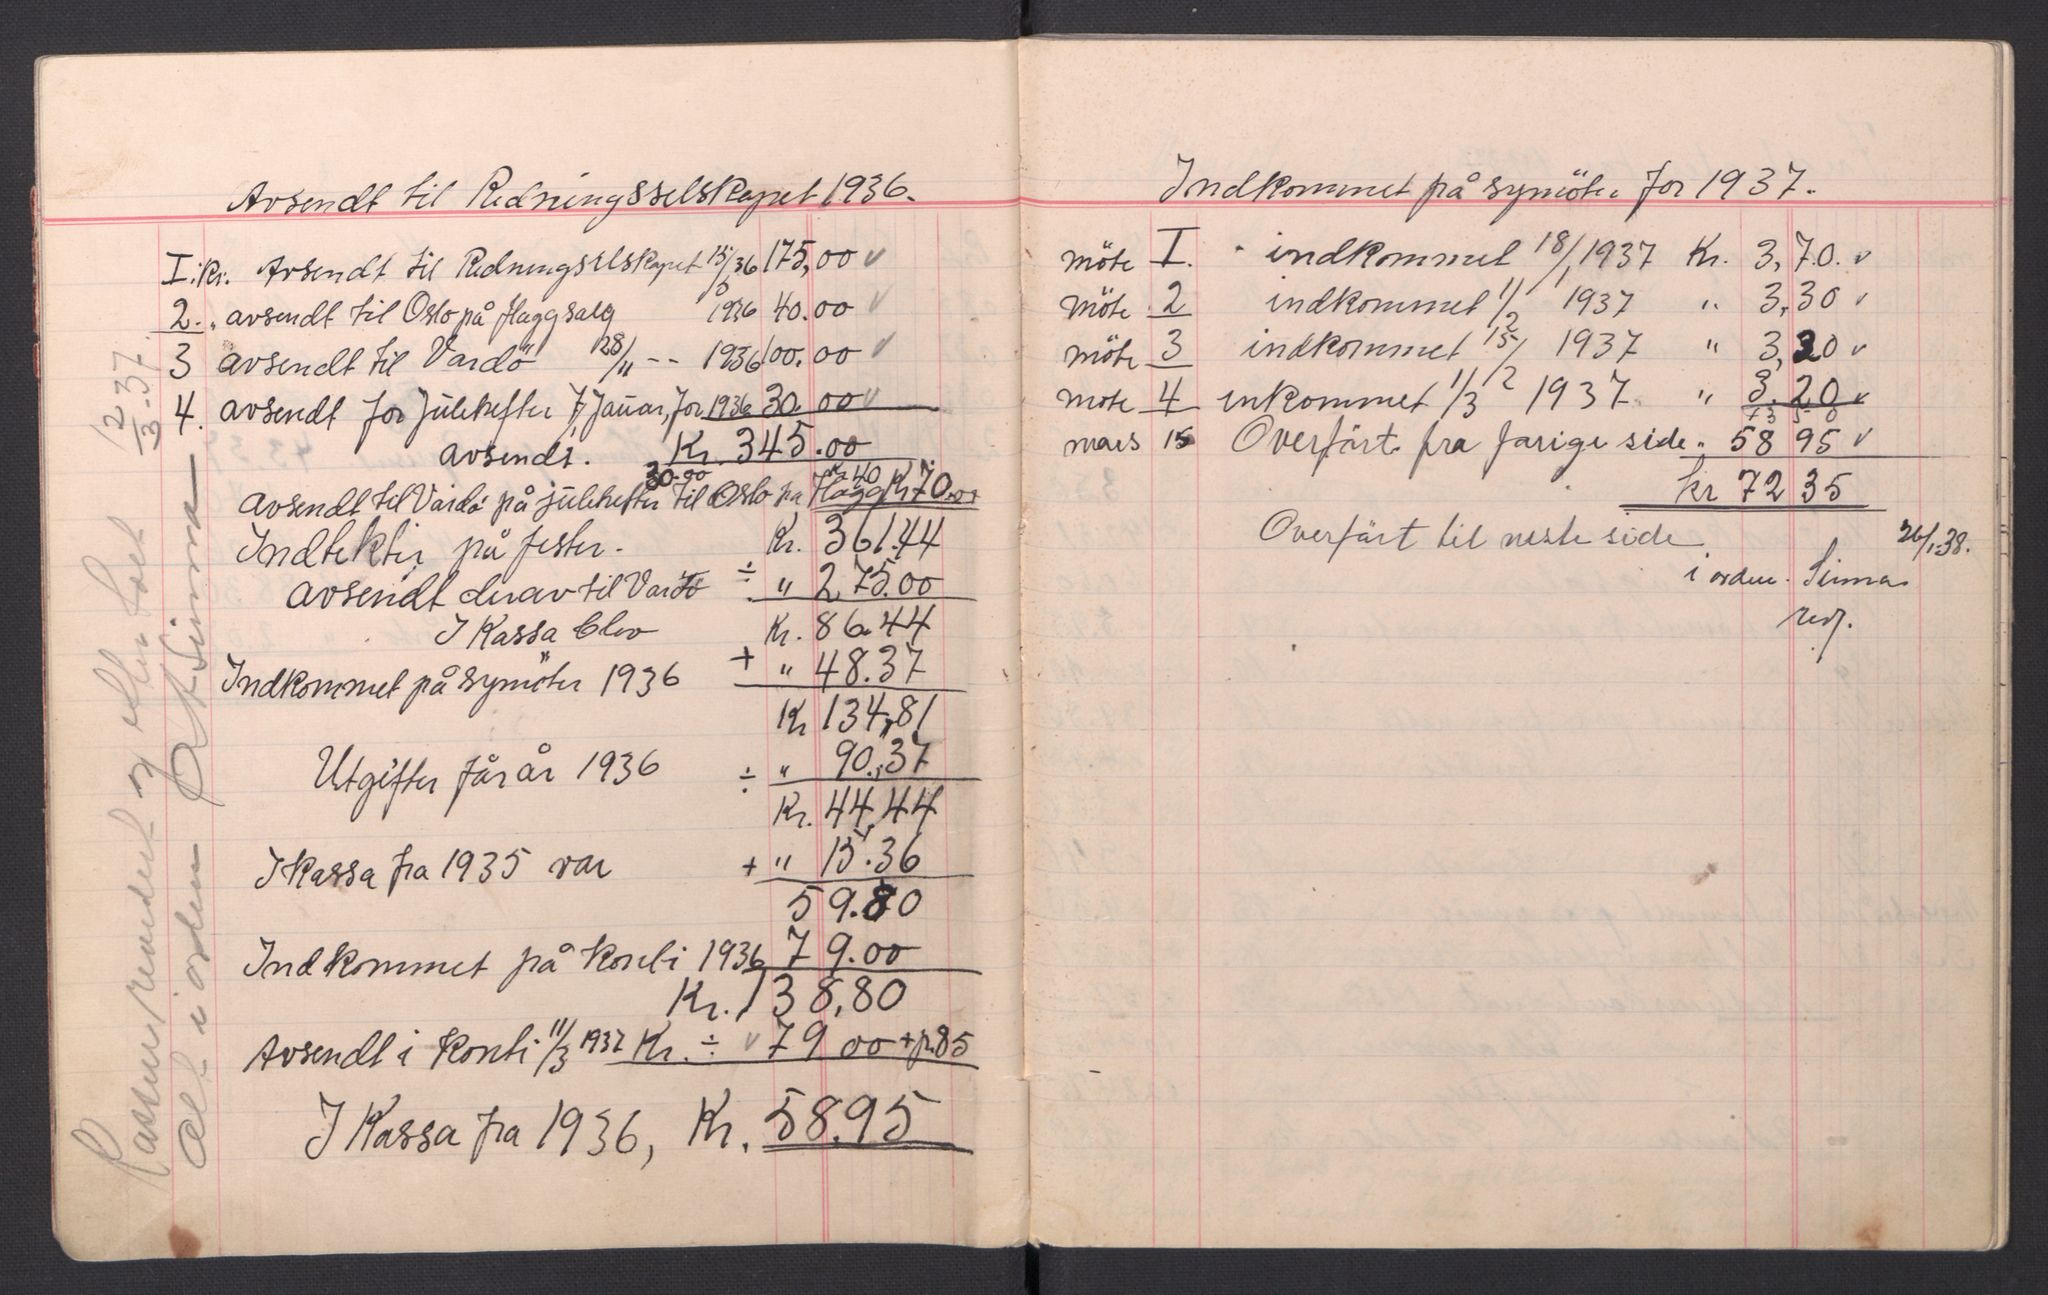 Avsendt til Redningsselskapet 1936.
I. kr. Avsendt til Redningsselskapet 15/ 36 175,00 v
2. " avsendt til Oslo på flaggsalg 1936 40.00 v
3 avsendt til Vardö 28/11 -- 1936 100.00 v
4. avsendt for Julehefter 7, Januar, for 1936 30.00 v
avsendt. Kr. 345.00
30.00 Kr 40
Avsendt til Vardö på julehefter til Oslo på Flagg Kr 70.00
Indtekter på fester. Kr. 361.44
avsendt derav til Vardö ÷ " 275.00
I Kassa blev Kr. 86.44
Indkommet på symöter 1936 + " 48.37
Kr 134,81
Utgifter får år 1936 ÷ " 90,37
Kr. 44,44
I Kassa fra 1935 var + " 15.36
59.80
Indkommet på Konti 1936 79.00
Kr. 138,80
Avsendt i Konti 11/3 1937 Kr. ÷ v 79 00 + p.85
I Kassa fra 1936, Kr. 58.95
12/3.37.
Alt i orden
Indkommet på symöter for 1937.
möte I. indkommet 18/1 1937 Kr. 3,70. v
möte 2 indkommet 1/2 1937 " 3,30 v
möte 3 indkommet 15/2 1937 " 3,20 v
möte 4 inkommet 1/3 1937 " 3.20 v
mars 15 Overfört fra farige side " 58 95 v
kr 72 35
Overfört til neste side
26/1.38.
i orden. Sinma
rev.